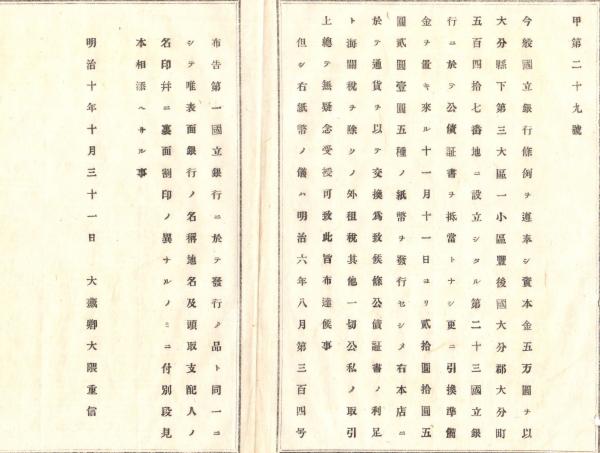 甲第二十九號
今般國立銀行條例ヲ遵奉シ資本金五万圓ヲ以
大分縣下第三大區一小區豐後國大分郡大分町
五百四拾七番地ニ設立シタル第二十三國立銀
行ニ於テ公債証書ヲ抵當トナシ更ニ引換準備
金ヲ置キ來ル十一月十一日ヨリ貳拾圓拾圓五
圓貳圓壹圓五種ノ紙幣ヲ發行セシメ右本店ニ
於テ通貨ヲ以テ交換爲致候條公債証書ノ利足
ト海關稅ヲ除クノ外租稅其他一切公私ノ取引
上總テ無疑念受授可致此旨布達候事
但シ右紙幣ノ儀ハ明治六年八月第三百四号
布告第一國立銀行ニ於テ發行ノ品ト同一ニ
シテ唯表面銀行ノ名稱地名及頭取支配人ノ
名印幷ニ裏面割印ノ異ナルノミニ付別段見
本相添ヘサル事
明治十年十月三十一日 大藏卿大隈重信